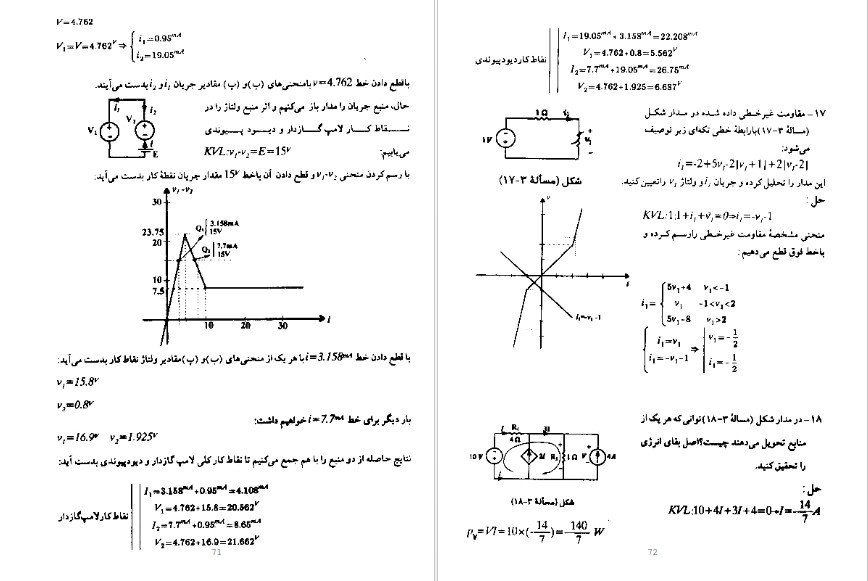 V=4.762
V₁=V=4.762ᵛ ⇒ { i₁=0.95ᵐᴬ
i₂=19.05ᵐᴬ
باقطع دادن خط v=4.762 بامنحنی‌های (ب) و (پ) مقادیر جریان i₁ و i₂ بدست می‌آیند.
حال، منبع جریان را مدار باز می‌کنیم و اثر منبع ولتاژ را در
نقاط کار لامپ گازدار و دیود پیوندی
می‌یابیم:
KVL:v₁-v₂=E=15ᵛ
i₁
i₂
V₁
V₂
i
E
با رسم کردن منحنی v₁-v₂ و قطع دادن آن باخط 15ᵛ مقدار جریان نقطهٔ کار بدست می‌آید:
v₁-v₂
30
23.75
20
10
7.5
Q₁ 3.158mA
15V
Q₂ 7.7mA
15V
10 20 30 i
با قطع دادن خط i=3.158ᵐᴬ با هر یک از منحنی‌های (ب) و (پ) مقادیر ولتاژ نقاط کار بدست می‌آید:
v₁=15.8ᵛ
v₂=0.8ᵛ
بار دیگر برای خط i=7.7ᵐᴬ خواهیم داشت:
v₁=16.9ᵛ v₂=1.925ᵛ
نتایج حاصله از دو منبع را با هم جمع می‌کنیم تا نقاط کار کلی لامپ گازدار و دیود پیوندی بدست آید:
نقاط کار لامپ گازدار
I₁=3.158ᵐᴬ+0.95ᵐᴬ=4.108ᵐᴬ
V₁=4.762+15.8=20.562ᵛ
I₂=7.7ᵐᴬ+0.95ᵐᴬ=8.65ᵐᴬ
V₂=4.762+16.9=21.662ᵛ
71
نقاط کار دیود پیوندی
I₁=19.05ᵐᴬ+3.158ᵐᴬ=22.208ᵐᴬ
V₁=4.762+0.8=5.562ᵛ
I₂=7.7ᵐᴬ+19.05ᵐᴬ=26.75ᵐᴬ
V₂=4.762+1.925=6.687ᵛ
۱۷- مقاومت غیرخطی داده شده در مدار شکل
(مسألهٔ ۳-۱۷) با رابطهٔ خطی تکه‌ای زیر توصیف
می‌شود:
i₁=-2+5v₁-2|v₁+1|+2|v₁-2|
1Ω
1V
v₁
شکل (مسألهٔ ۳-۱۷)
این مدار را تحلیل کرده و جریان i₁ و ولتاژ v₁ را تعیین کنید.
حل:
KVL:1.1+i₁+v₁=0⇒i₁=-v₁-1
منحنی مشخصهٔ مقاومت غیرخطی را رسم کرده و
با خط فوق قطع می‌دهیم:
v
i
i₁=-v₁-1
i₁= { 5v₁+4 v₁<-1
v₁ -1<v₁<2
5v₁-8 v₁>2
{ i₁=v₁
i₁=-v₁-1 ⇒ | v₁=-1/2
i₁=-1/2
۱۸- در مدار شکل (مسألهٔ ۳-۱۸) توانی که هر یک از
منابع تحویل می‌دهند چیست؟ اصل بقای انرژی
را تحقیق کنید.
I R₁
4Ω
3I
10V
2I
R₂
1Ω
V
4A
شکل (مسألهٔ ۳-۱۸)
حل:
KVL:10+4I+3I+4=0→I=-14/7 A
Pᵥ=VI=10×(-14/7)=-140/7 W
72